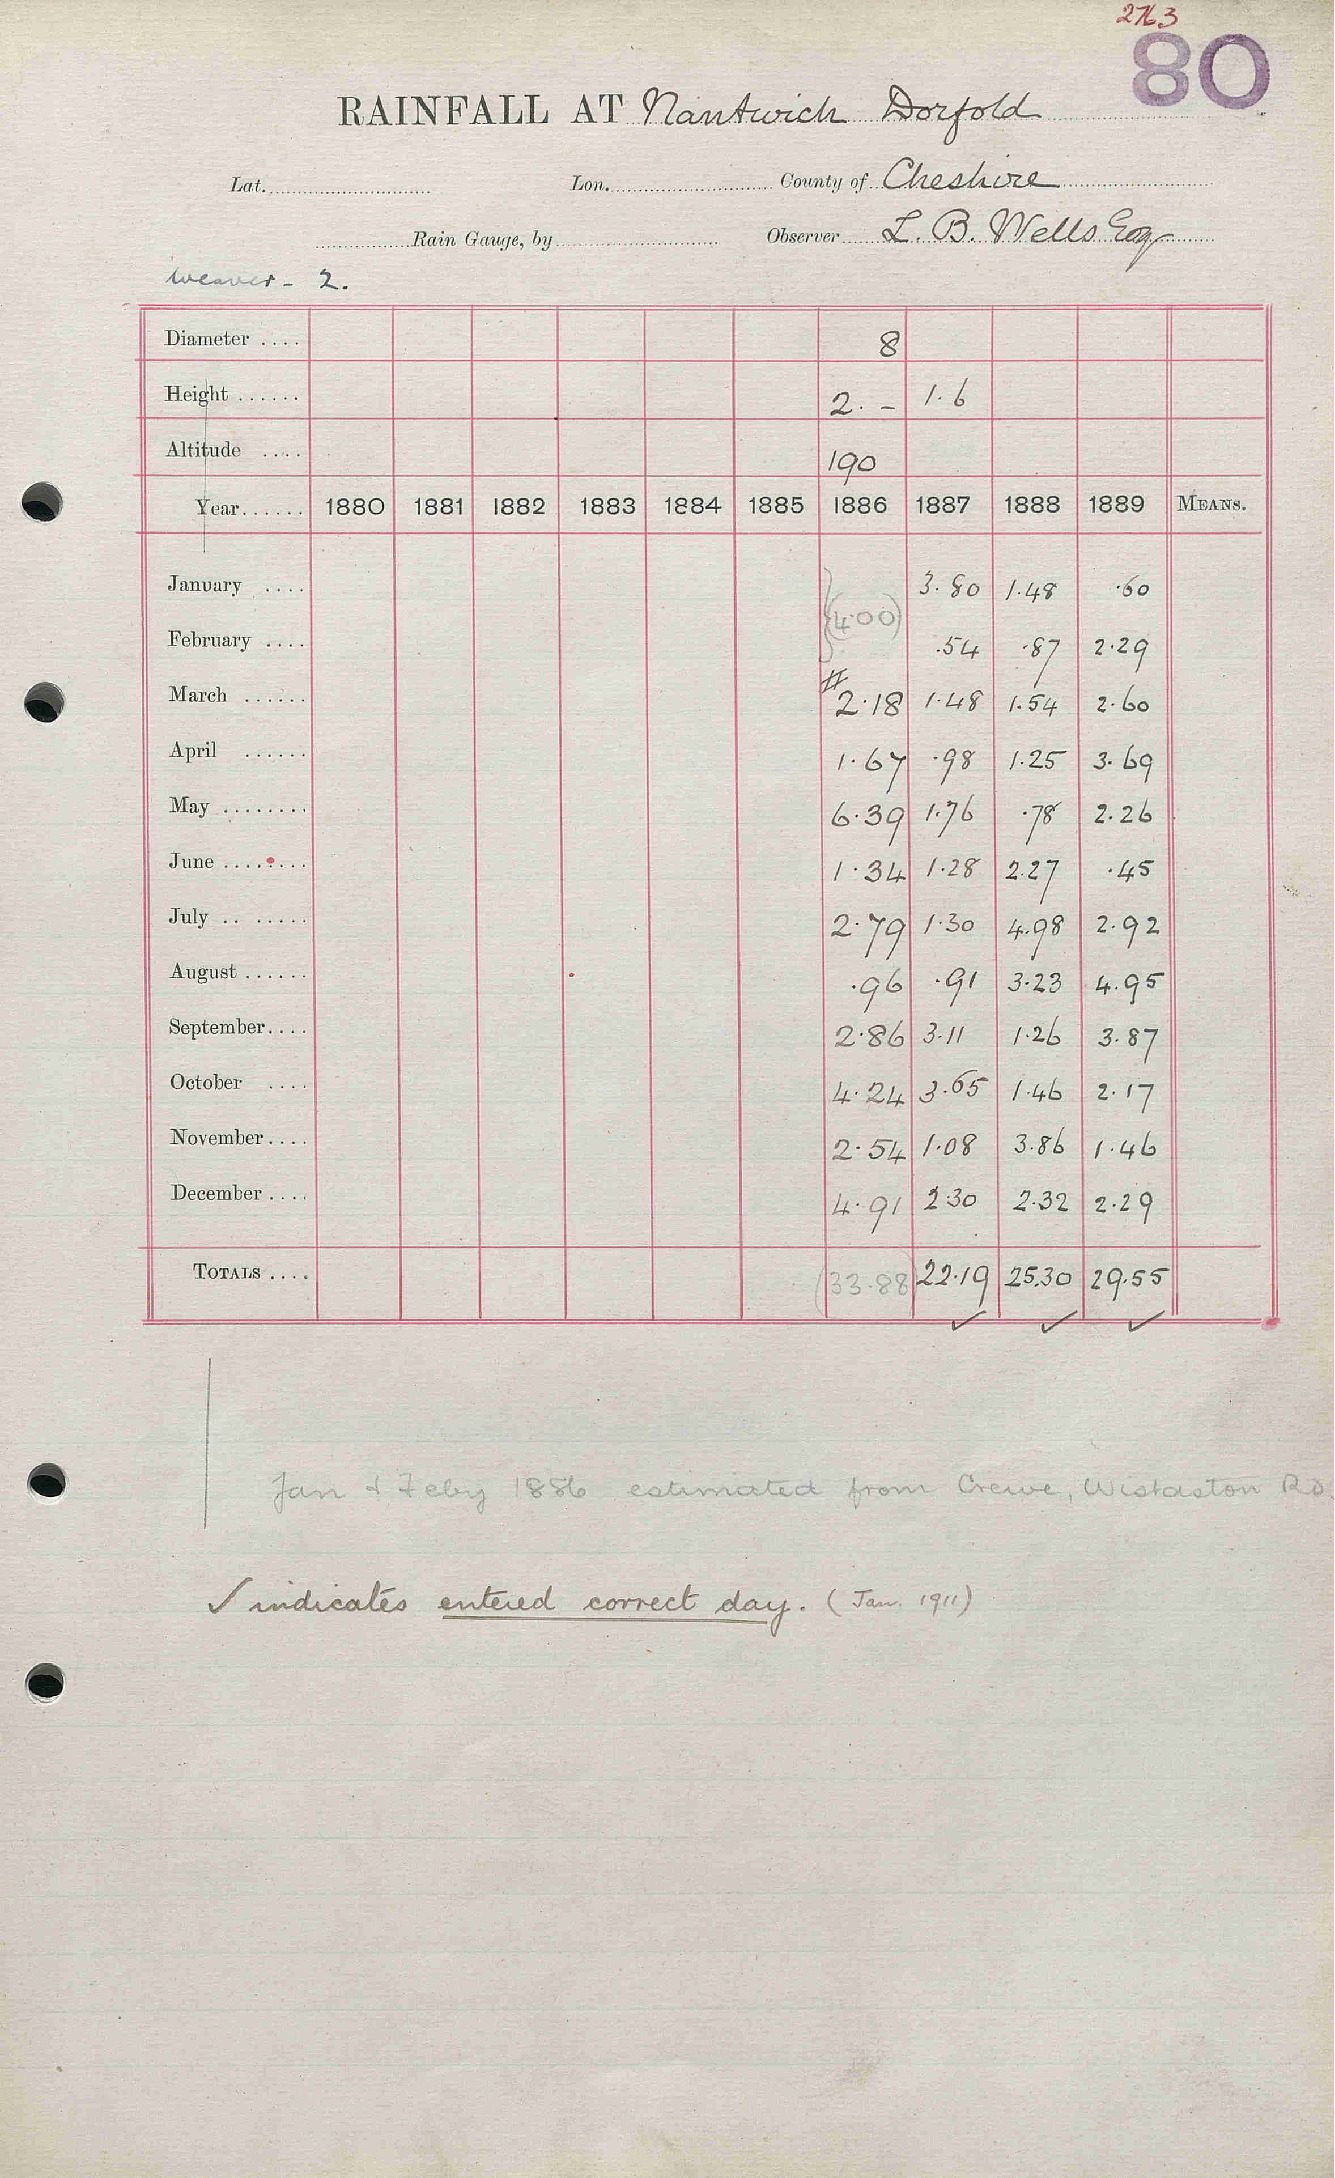 2763
80
RAINFALL AT Nantwich Dorfold
Lat. Lon. County of Cheshire
Rain Gauge, by Observer L. B. Wells Esq
Weaver - 2.
Diameter .... 8
Height ...... 2. - 1.6
Altitude .... 190
Year...... 1880 1881 1882 1883 1884 1885 1886 1887 1888 1889 MEANS.
January .... 3.80 1.48 .60
(4.00)
February .... .54 .87 2.29
#
March ...... 2.18 1.48 1.54 2.60
April ...... 1.67 .98 1.25 3.69
May ........ 6.39 1.76 .78 2.26
June ........ 1.34 1.28 2.27 .45
July .. ..... 2.79 1.30 4.98 2.92
August ...... .96 .91 3.23 4.95
September.... 2.86 3.11 1.26 3.87
October .... 4.24 3.65 1.46 2.17
November.... 2.54 1.08 3.86 1.46
December .... 4.91 2.30 2.32 2.29
TOTALS .... (33.88) 22.19 25.30 29.55
✓ ✓ ✓
Jan & Feby 1886 estimated from Crewe, Wistaston Rd.
✓ indicates entered correct day. (Jan. 1911)